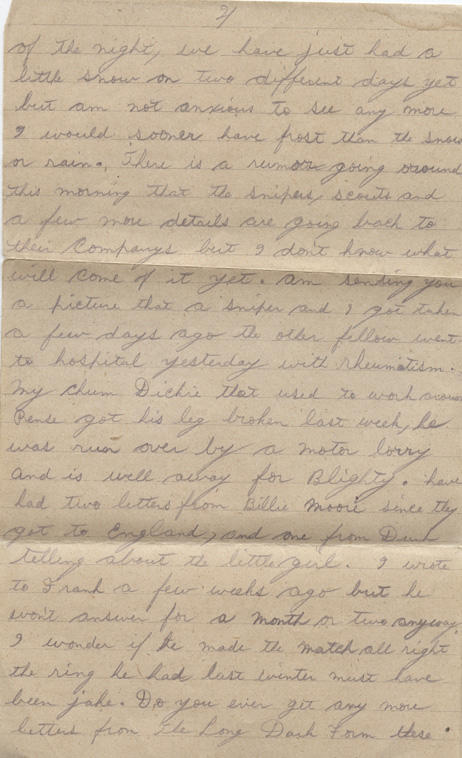 2/
of the night, we have just had a
little snow on two different days yet
but am not anxious to see any more
I would sooner have frost than the snow
or rain. There is a rumor going around
this morning that the snipers, scouts and
a few more details are going back to
their Companys but I don't know what
will come of it yet. am sending you
a picture that a sniper and I got taken
a few days ago the other fellow went
to hospital yesterday with rheumatism.
My chum Dickie that used to work around
Pense got his leg broken last week, he
was run over by a motor lorry
and is well away for Blighty. have
had two letters from Billie Moore since they
got to England, and one from
telling about the little girl. I wrote
to Frank a few weeks ago but he
won't answer for a month or two anyway
I wonder if he made the match all right
the ring he had last winter must have
been jake. Do you ever get any more
letters from the Long Dash Farm these